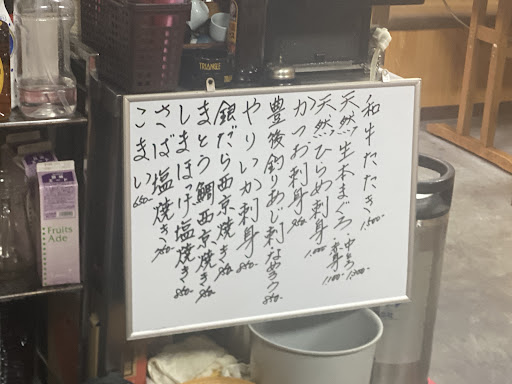 和牛たたき 1,500-
天然生本まぐろ 中とろ 1,300-
赤身 1,100-
天然ひらめ刺身 1,000-
かつお刺身 950-
豊後釣りあじ刺 なめろう 850-
やりいか刺身 850-
銀だら西京焼き 950-
まとう鯛西京焼き 950-
しまほっけ塩焼き 850-
さば塩焼き 750-
こまい 600-
Fruits
Ade